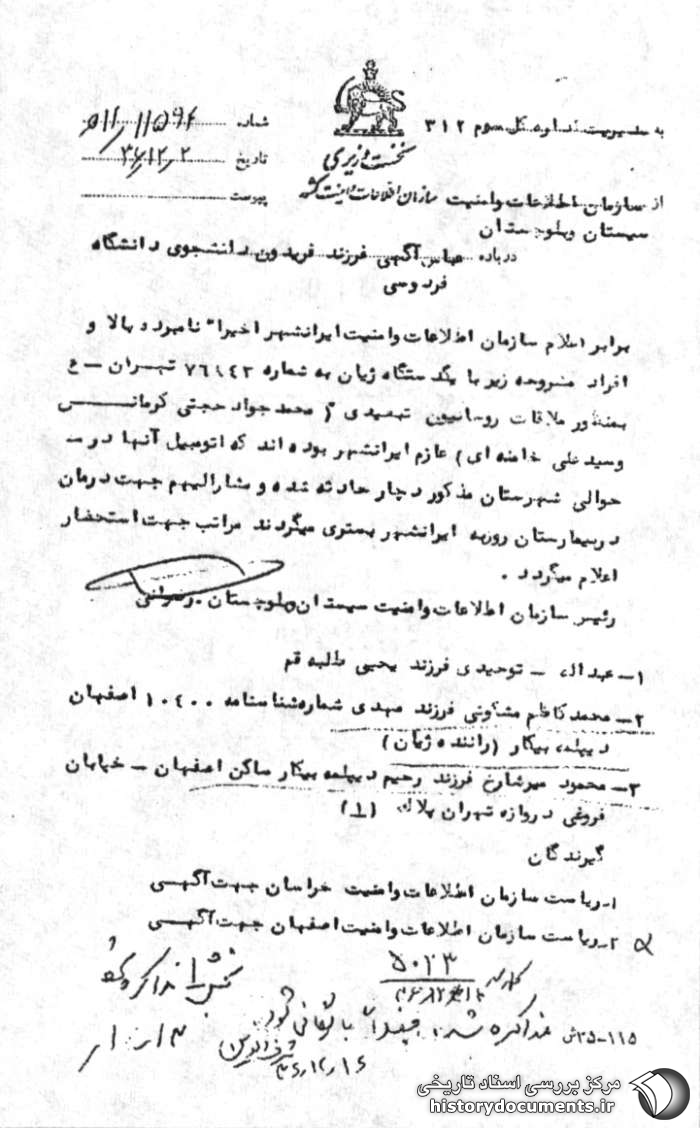 به مدیریت کل اداره کل سوم ۳۱۲
شماره ۱۱۵۹۴
نخست وزیری
تاریخ ۳۶/۱۲/۲
از سازمان اطلاعات وامنیت
سازمان اطلاعات و امنیت کشور
پیوست
سیستان وبلوچستان
درباره عباس آگهی فرزند فریدون دانشجوی دانشگاه
فردوسی
برابر اعلام سازمان اطلاعات وامنیت ایرانشهر اخیرا" نامبرده بالا و
افراد مشروحه زیر با یکدستگاه ژیان به شماره تهران – ع
بمنظور ملاقات روحانیون تبعیدی ( محمد جواد حجتی کرمانی
وسید علی خامنه ای ) عازم ایرانشهر بوده اند که اتومبیل آنها در –
حوالی شهرستان مذکور دچار حادثه شده و مشارالیهم جهت درمان
در بیمارستان روزبه ایرانشهر بستری میگردند مراتب جهت استحضار
اعلام میگردد .
رئیس سازمان اطلاعات وامنیت سیستان وبلوچستان
۱– توحیدی فرزند یحیی طلبه قم
۲– محمدکاظم فرزند مهدی شماره شناسنامه ۱۰۴۰۰ اصفهان
دیپلمه بیکار (راننده ژیان)
۳– محمود میرشارخ فرزند رحیم دیپلمه بیکار ساکن اصفهان – خیابان
فروغی دروازه تهران پلاک (۱)
گیرندگان
۱– ریاست سازمان اطلاعات وامنیت خراسان جهت آگهی
۲– ریاست سازمان اطلاعات وامنیت اصفهان جهت آگهی
۵۰۲۳
مذاکره شد
۳۵–۱۱۵ش
۳۶/۱۲/۱۶
مرکز بررسی اسناد تاریخی
historydocuments.ir